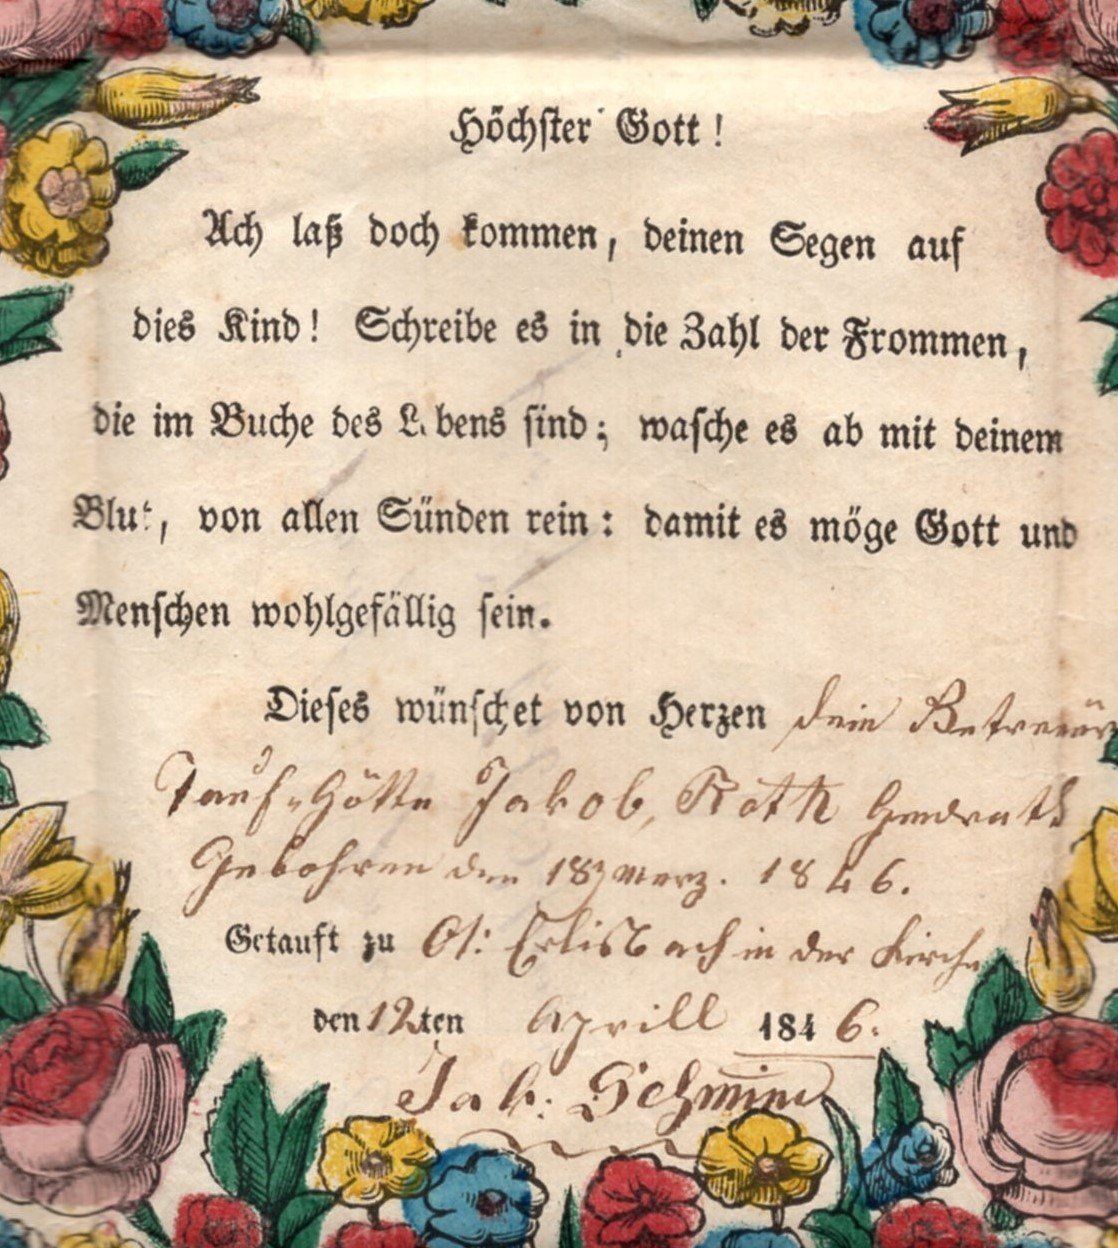 Höchster Gott!
Ach laß doch kommen, deinen Segen auf
dies Kind! Schreibe es in die Zahl der Frommen,
die im Buche des L bens sind; wasche es ab mit deinem
Blut, von allen Sünden rein: damit es möge Gott und
Menschen wohlgefällig sein.
Dieses wünschet von Herzen dein
Tauf-Götte Jakob, Roth
Gebohren den 18 Merz. 1846.
Getauft zu Erlisbach in der Kirche
den 12ten Aprill 1846.
Jak: